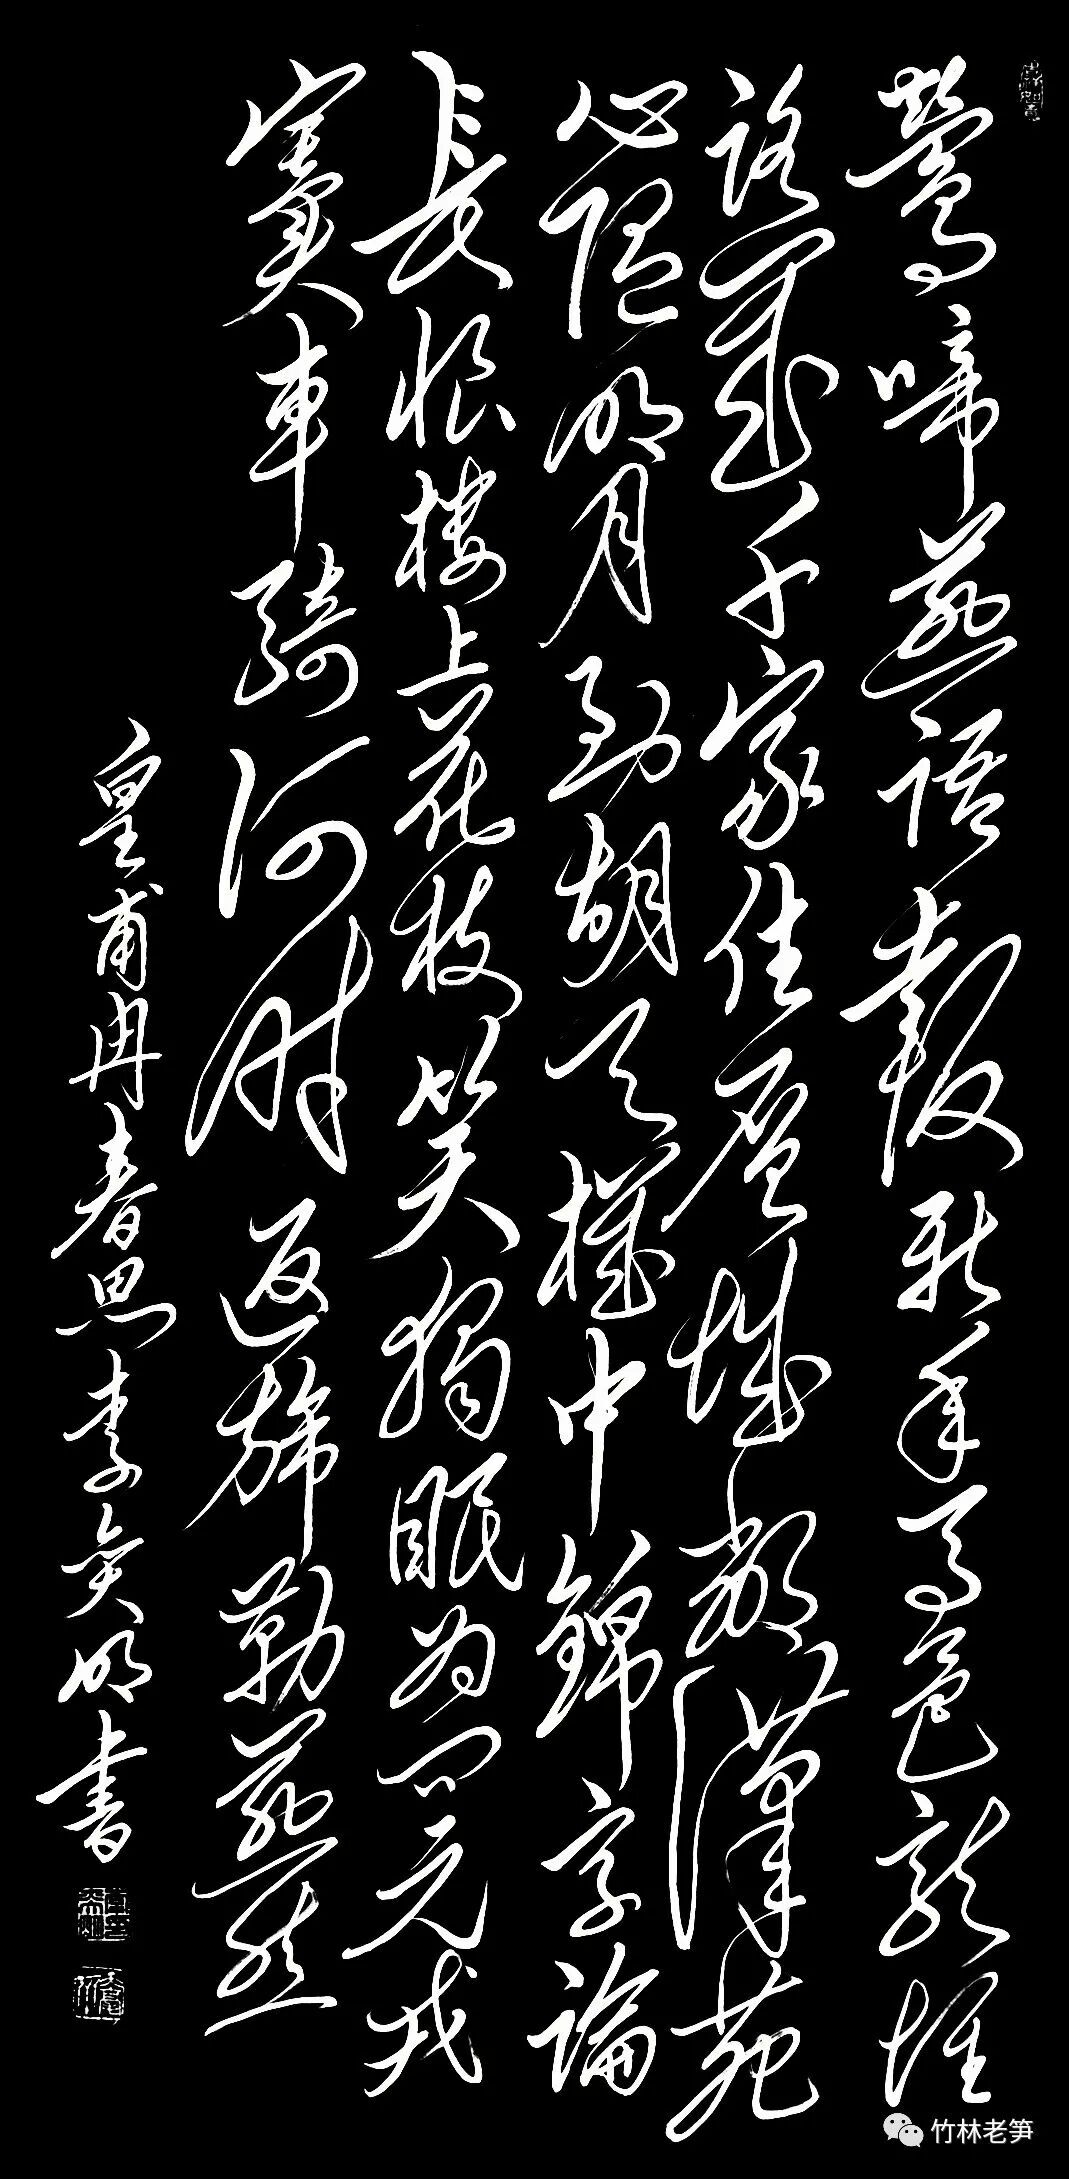 鶯啼燕語報新年馬邑龍堆
路幾千家住層城鄰漢苑
心隨明月到胡天機中錦字論
長恨楼上花枝笑獨眠为問元戎
竇車騎何時返旆勒燕然
皇甫冉春思李明書
竹林老笋